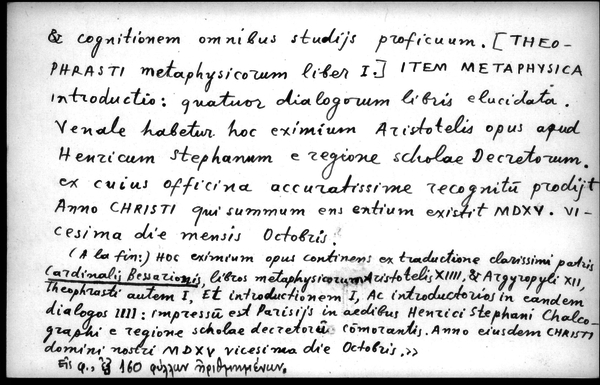 & cognitionem omnibus studijs proficuum. [THEO-
PHRASTI metaphysicorum liber I.] ITEM METAPHYSICA
introductio: quatuor dialogorum libris elucidata.
Venale habetur hoc eximium Aristotelis opus apud
Henricum Stephanum e regione scholae Decretorum.
ex cuius officina accuratissime recognitū prodijt
Anno CHRISTI qui summum ens entium existit MDXV. VI-
cesima die mensis Octobris.
(A la fin:) Hoc eximium opus continens ex traductione clarissimi patris
Cardinalij Bessarionis, libros metaphysicorum Aristotelis XIIII, & Argyropyli XII,
Theophrasti autem I, Et introductionem I, Ac introductorios in eandem
dialogos IIII: impressū est Parisijs in aedibus Henrici Stephani Chalco-
graphi e regione scholae decretorū cōmorantis. Anno eiusdem CHRISTI
domini nostri MDXV vicesima die Octobris.>>
Εἰς φ., 160 φύλλων ἠριθμημένων.